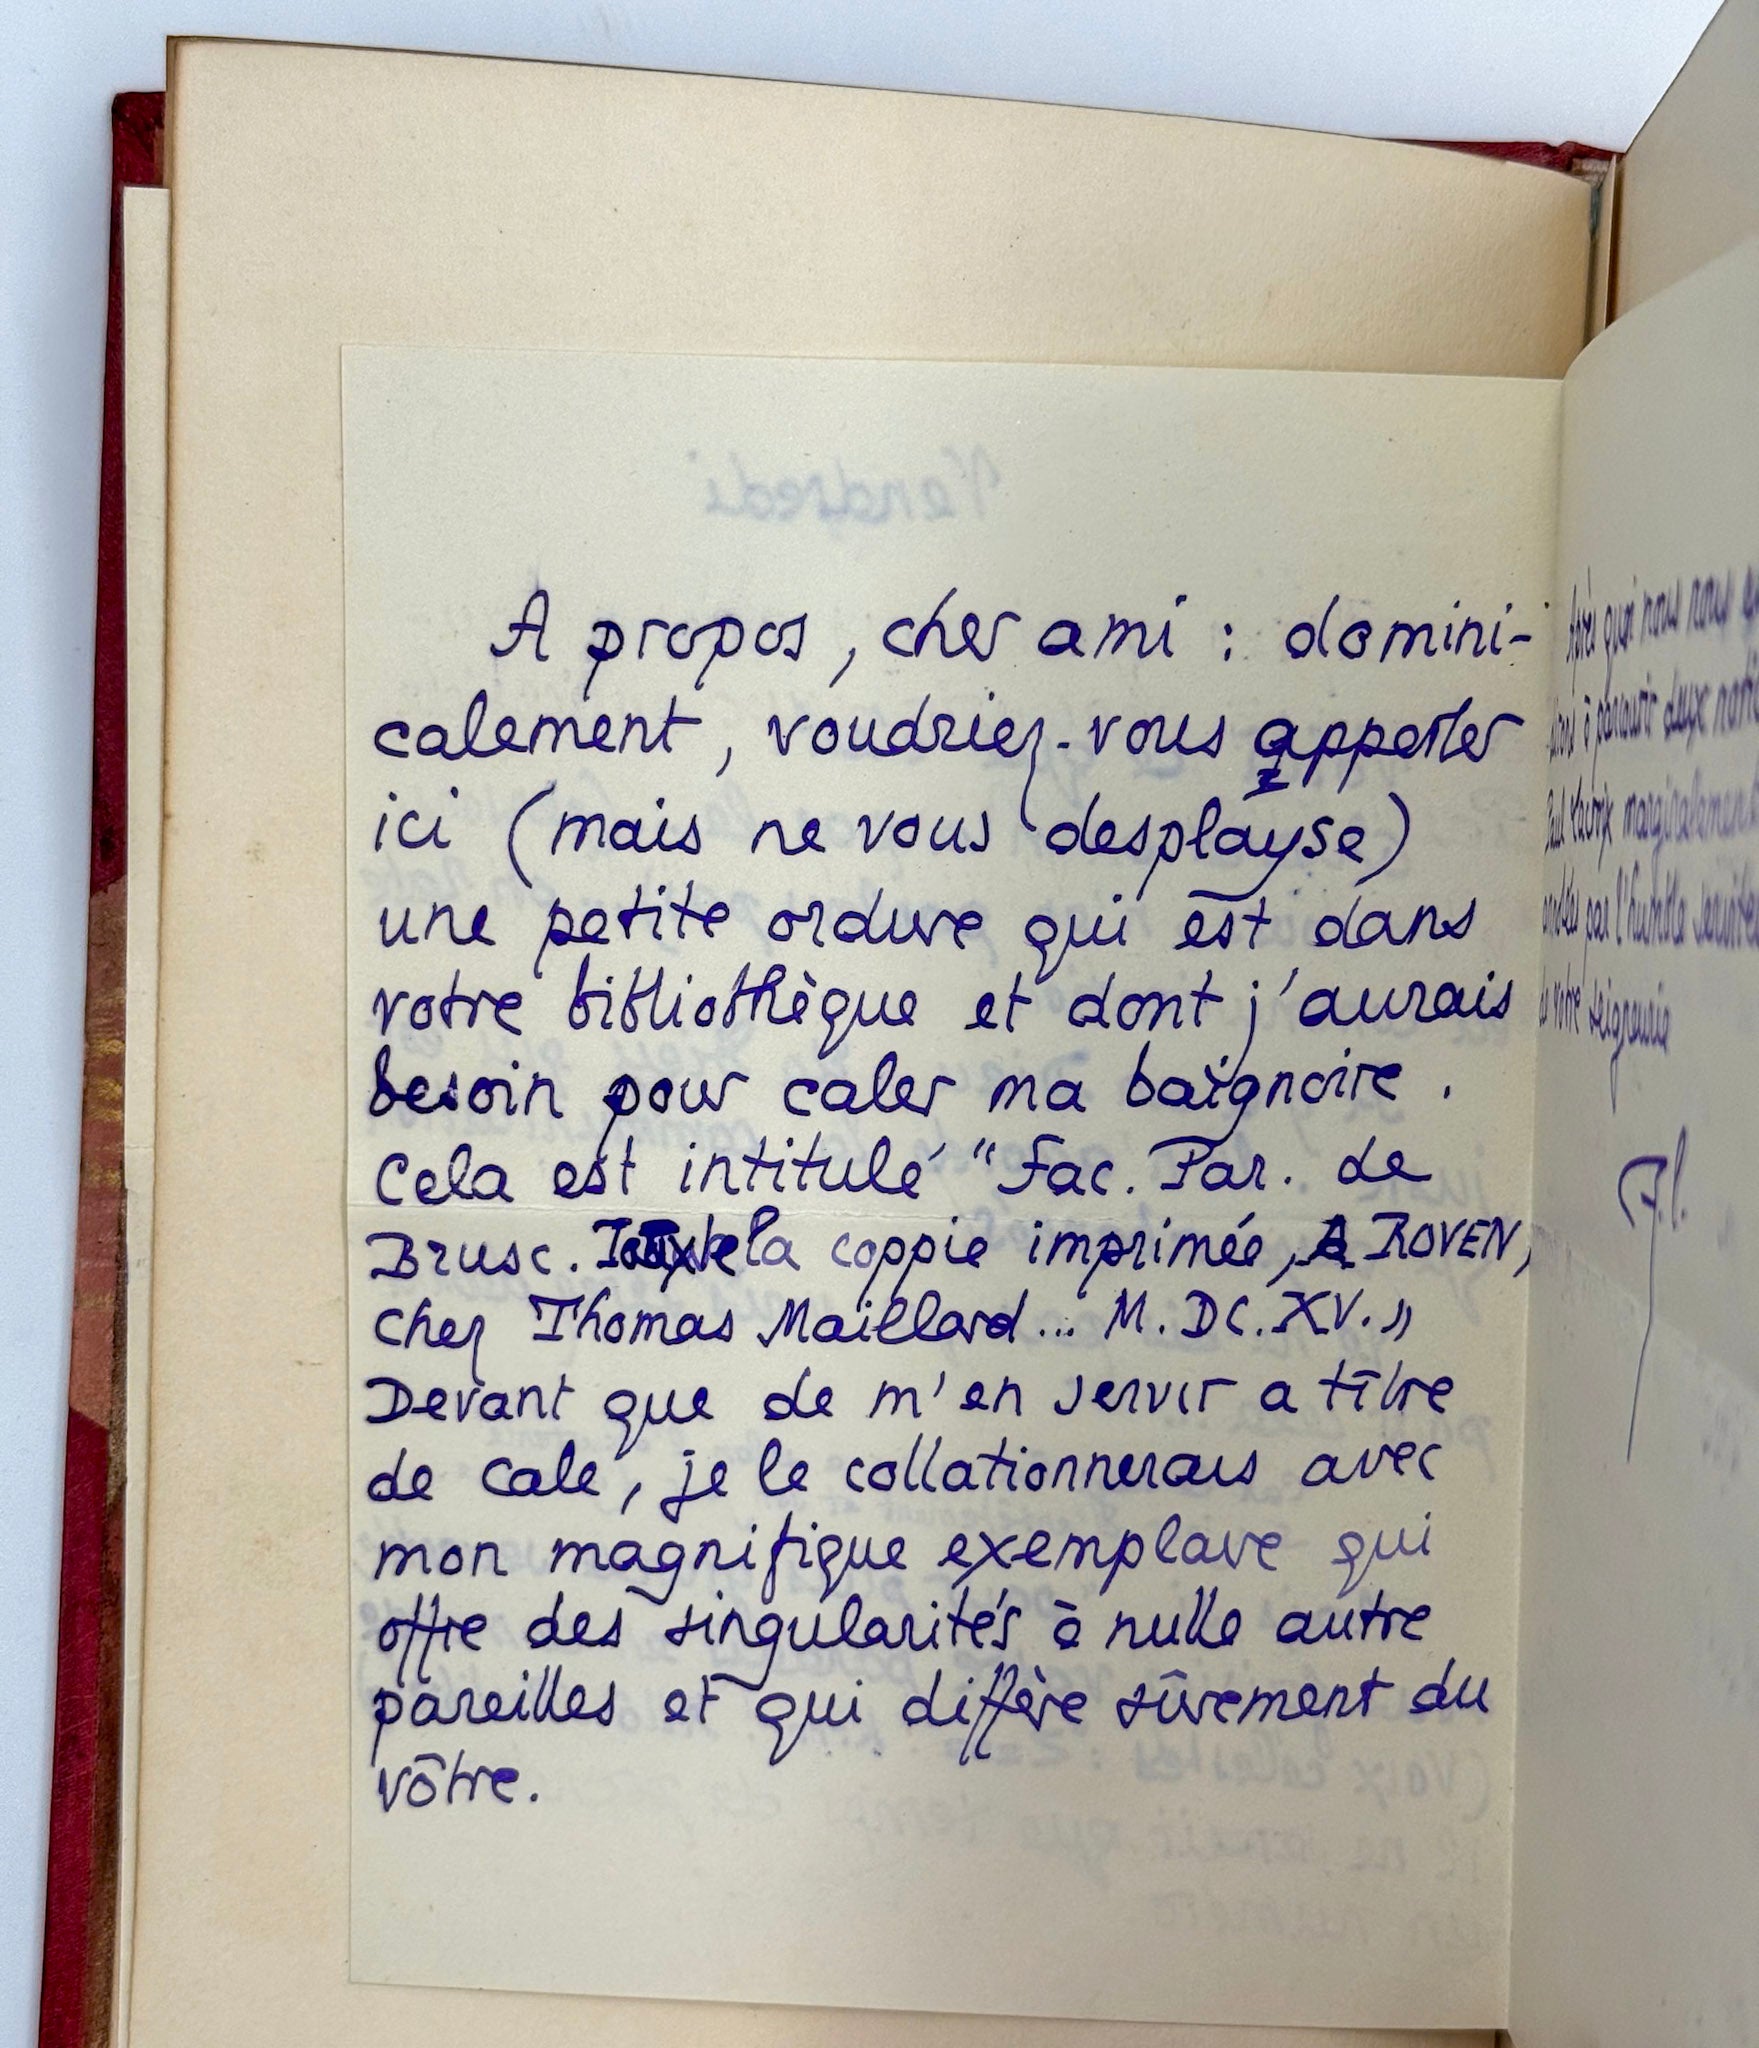 Vendredi
A propos, cher ami : domini-
calement, voudriez-vous apporter
ici (mais ne vous desplayse)
une petite ordure qui est dans
votre bibliothèque et dont j'aurais
besoin pour caler ma baignoire.
Cela est intitulé "Fac. Par. de
Brusc. la coppie imprimée, A ROVEN,
chez Thomas Maillard... M.DC.XV."
Devant que de m'en servir a titre
de cale, je le collationnerais avec
mon magnifique exemplaire qui
offre des singularités à nulle autre
pareilles et qui diffère sûrement du
vôtre.
Après quoi nous nous
à parcourir deux
Paul Lacroix marginalement
par l'humble
de votre Seigneurie